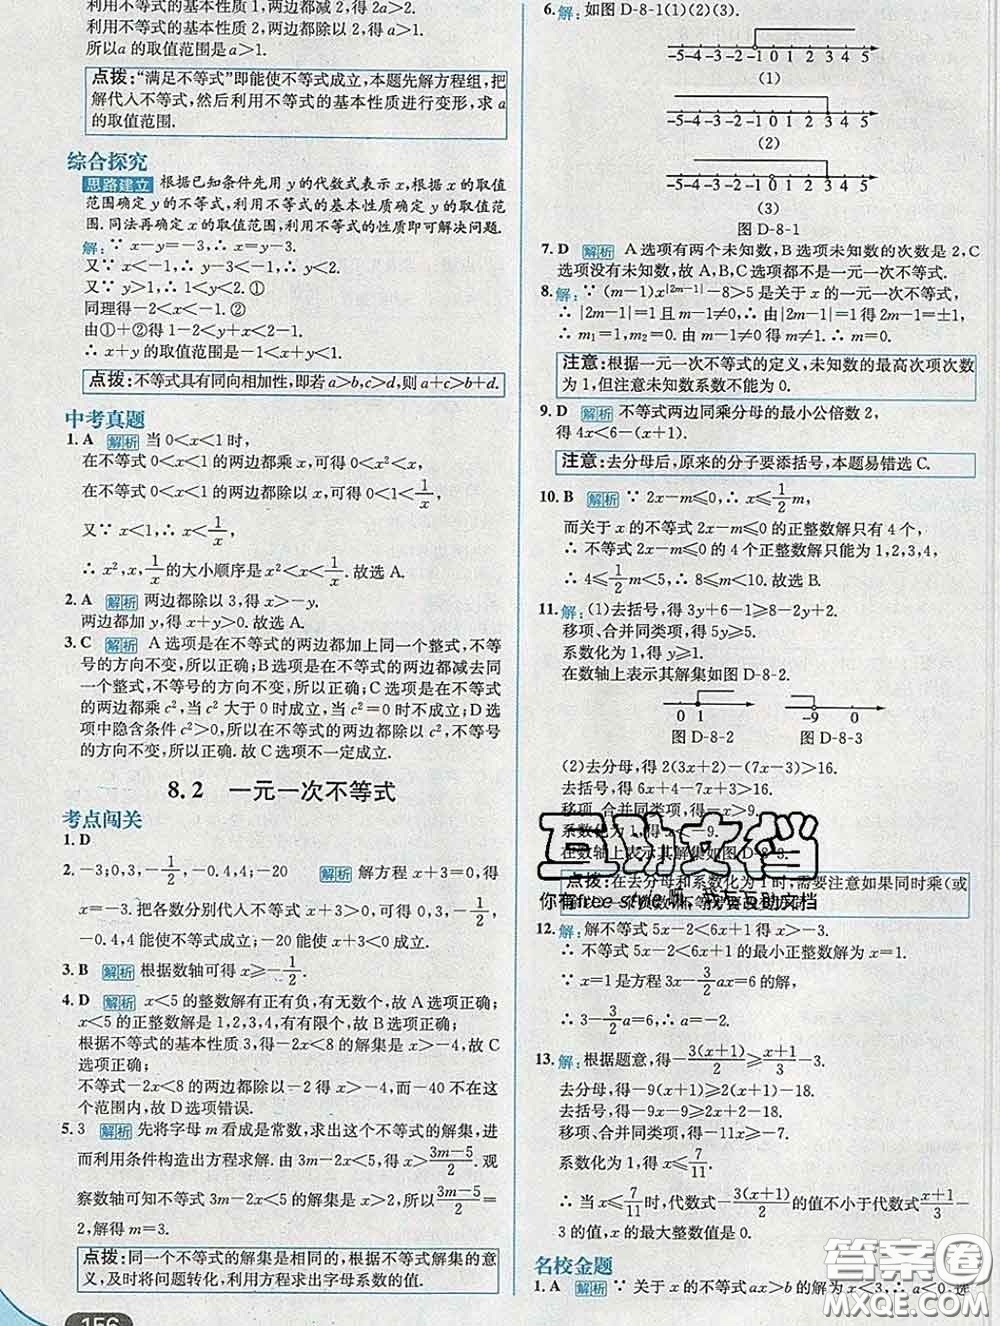 利用不等式的基本性质 1,两边都减 2,得 2a>2.
利用不等式的基本性质 2,两边都除以 2,得 a>1.
所以 a 的取值范围是 a>1.
点拨:“满足不等式”即能使不等式成立,本题先解方程组,把
解代人不等式,然后利用不等式的基本性质进行变形,求 a
的取值范围.
综合探究
思路建立 根据已知条件先用 y 的代数式表示 x,根据 x 的取值
范围确定 y 的不等式,利用不等式的基本性质确定 y 的取值范
围.同法再确定 x 的取值范围,利用不等式的性质即可解决问题.
解:∵ x-y=-3,∴ x=y-3.
又∵ x<-1,∴ y-3<-1,∴ y<2.
又∵ y>1,∴ 1<y<2.①
同理得-2<x<-1.②
由①+②得 1-2<y+x<2-1.
∴ x+y 的取值范围是-1<x+y<1.
点拨:不等式具有同向相加性,即若 a>b,c>d,则 a+c>b+d.
中考真题
1. A 解析 当 0<x<1 时,
在不等式 0<x<1 的两边都乘 x,可得 0<x²<x.
在不等式 0<x<1 的两边都除以 x,可得 0<1<1/x,
又∵ x<1,∴ x<1/x.
∴ x²,x,1/x 的大小顺序是 x²<x<1/x.故选 A.
2. A 解析 两边都除以 3,得 x>-y.
两边都加 y,得 x+y>0.故选 A.
3. C 解析 A 选项是在不等式的两边都加上同一个整式,不等
号的方向不变,所以正确;B 选项是在不等式的两边都减去同
一个整式,不等号的方向不变,所以正确;C 选项是在不等式
的两边都乘 c²,当 c² 大于 0 时成立,当 c²=0 时不成立;D 选
项中隐含条件 c²>0,所以在不等式的两边都除以 c²,不等号
的方向不变,所以正确.故 C 选项不一定成立.
8.2 一元一次不等式
考点闯关
1. D
2. -3;0,3,-1/2,-0.4,4;-20 解析 解方程 x+3=0,得
x=-3.把各数分别代人不等式 x+3>0,可得 0,3,-1/2,
-0.4,4 能使不等式成立;-20 能使 x+3<0 成立.
3. B 解析 根据数轴可得 x≥-1/2.
4. D 解析 x<5 的整数解有正有负,有无数个,故 A 选项正确;
x<5 的正整数解是 1,2,3,4,有有限个,故 B 选项正确;
根据不等式的基本性质 3,-2x<8 的解集是 x>-4,故 C
选项正确;
不等式-2x<8 的两边都除以-2 得 x>-4,而-40 不在这
个范围内,故 D 选项错误.
5. 3 解析 先将字母 m 看成是常数,求出这个不等式的解集,进
而利用条件构造出方程求解.由 3m-2x<5,得 x>(3m-5)/2.观
察数轴可知不等式 3m-2x<5 的解集是 x>2,所以(3m-5)/2=
2,解得 m=3.
点拨:同一个不等式的解集是相同的,根据不等式解集的意
义,及时将问题转化,利用方程求出字母系数的值.
156
6. 解:如图 D-8-1(1)(2)(3).
-5-4-3-2-1 0 1 2 3 4 5
(1)
-5-4-3-2-1 0 1 2 3 4 5
(2)
-5-4-3-2-1 0 1 2 3 4 5
(3)
图 D-8-1
7. D 解析 A 选项有两个未知数,B 选项未知数的次数是 2,C
选项没有未知数,故 A、B、C 选项都不是一元一次不等式.
8. 解:∵ (m-1)x|2m-1|-8>5 是关于 x 的一元一次不等式,
∴ |2m-1|=1 且 m-1≠0,∴ 由|2m-1|=1 得 2m-1=±1,
∴ m₁=1,m₂=0.由 m-1≠0 得 m≠1,∴ m=0.
注意:根据一元一次不等式的定义,未知数的最高次项次数
为 1,但注意未知数系数不能为 0.
9. D 解析 不等式两边同乘分母的最小公倍数 2,
得 4x<6-(x+1).
注意:去分母后,原来的分子要添括号,本题易错选 C.
10. B 解析 ∵ 2x-m≤0,∴ x≤1/2m,
而关于 x 的不等式 2x-m≤0 的正整数解只有 4 个,
∴ 不等式 2x-m≤0 的 4 个正整数解只能为 1,2,3,4,
∴ 4≤1/2m<5,∴ 8≤m<10.故选 B.
11. 解:(1)去括号,得 3y+6-1≥8-2y+2.
移项、合并同类项,得 5y≥5.
系数化为 1,得 y≥1.
在数轴上表示其解集如图 D-8-2.
0 1
图 D-8-2
-9 0
图 D-8-3
(2)去分母,得 2(3x+2)-(7x-3)>16.
去括号,得 6x+4-7x+3>16.
移项、合并同类项,得-x>9.
系数化为 1,得 x<-9.
在数轴上表示其解集如图 D-8-3.
互助文档
你有free style啊,我有互助文档
点拨:在去分母和系数化为 1 时,需要注意如果同时乘(或
12. 解:解不等式 5x-2<6x+1 得 x>-3.
∴ 不等式 5x-2<6x+1 的最小正整数解为 x=1.
∵ x=1 是方程 3x-3/2ax=6 的解,
∴ 3-3/2a=6,∴ a=-2.
13. 解:根据题意,得-3(x+1)/2≥(x+1)/3-3.
去分母,得-9(x+1)≥2(x+1)-18.
去括号,得-9x-9≥2x+2-18.
移项、合并同类项,得-11x≥-7.
系数化为 1,得 x≤7/11.
∴ 当 x≤7/11时,代数式-3(x+1)/2 的值不小于代数式(x+1)/3-
3 的值,x 的最大整数值是 0.
名校金题
1. A 解析 ∵ 关于 x 的不等式 ax>b 的解为 x<3,∴ a<0.选
答案圈
MXQE.COM